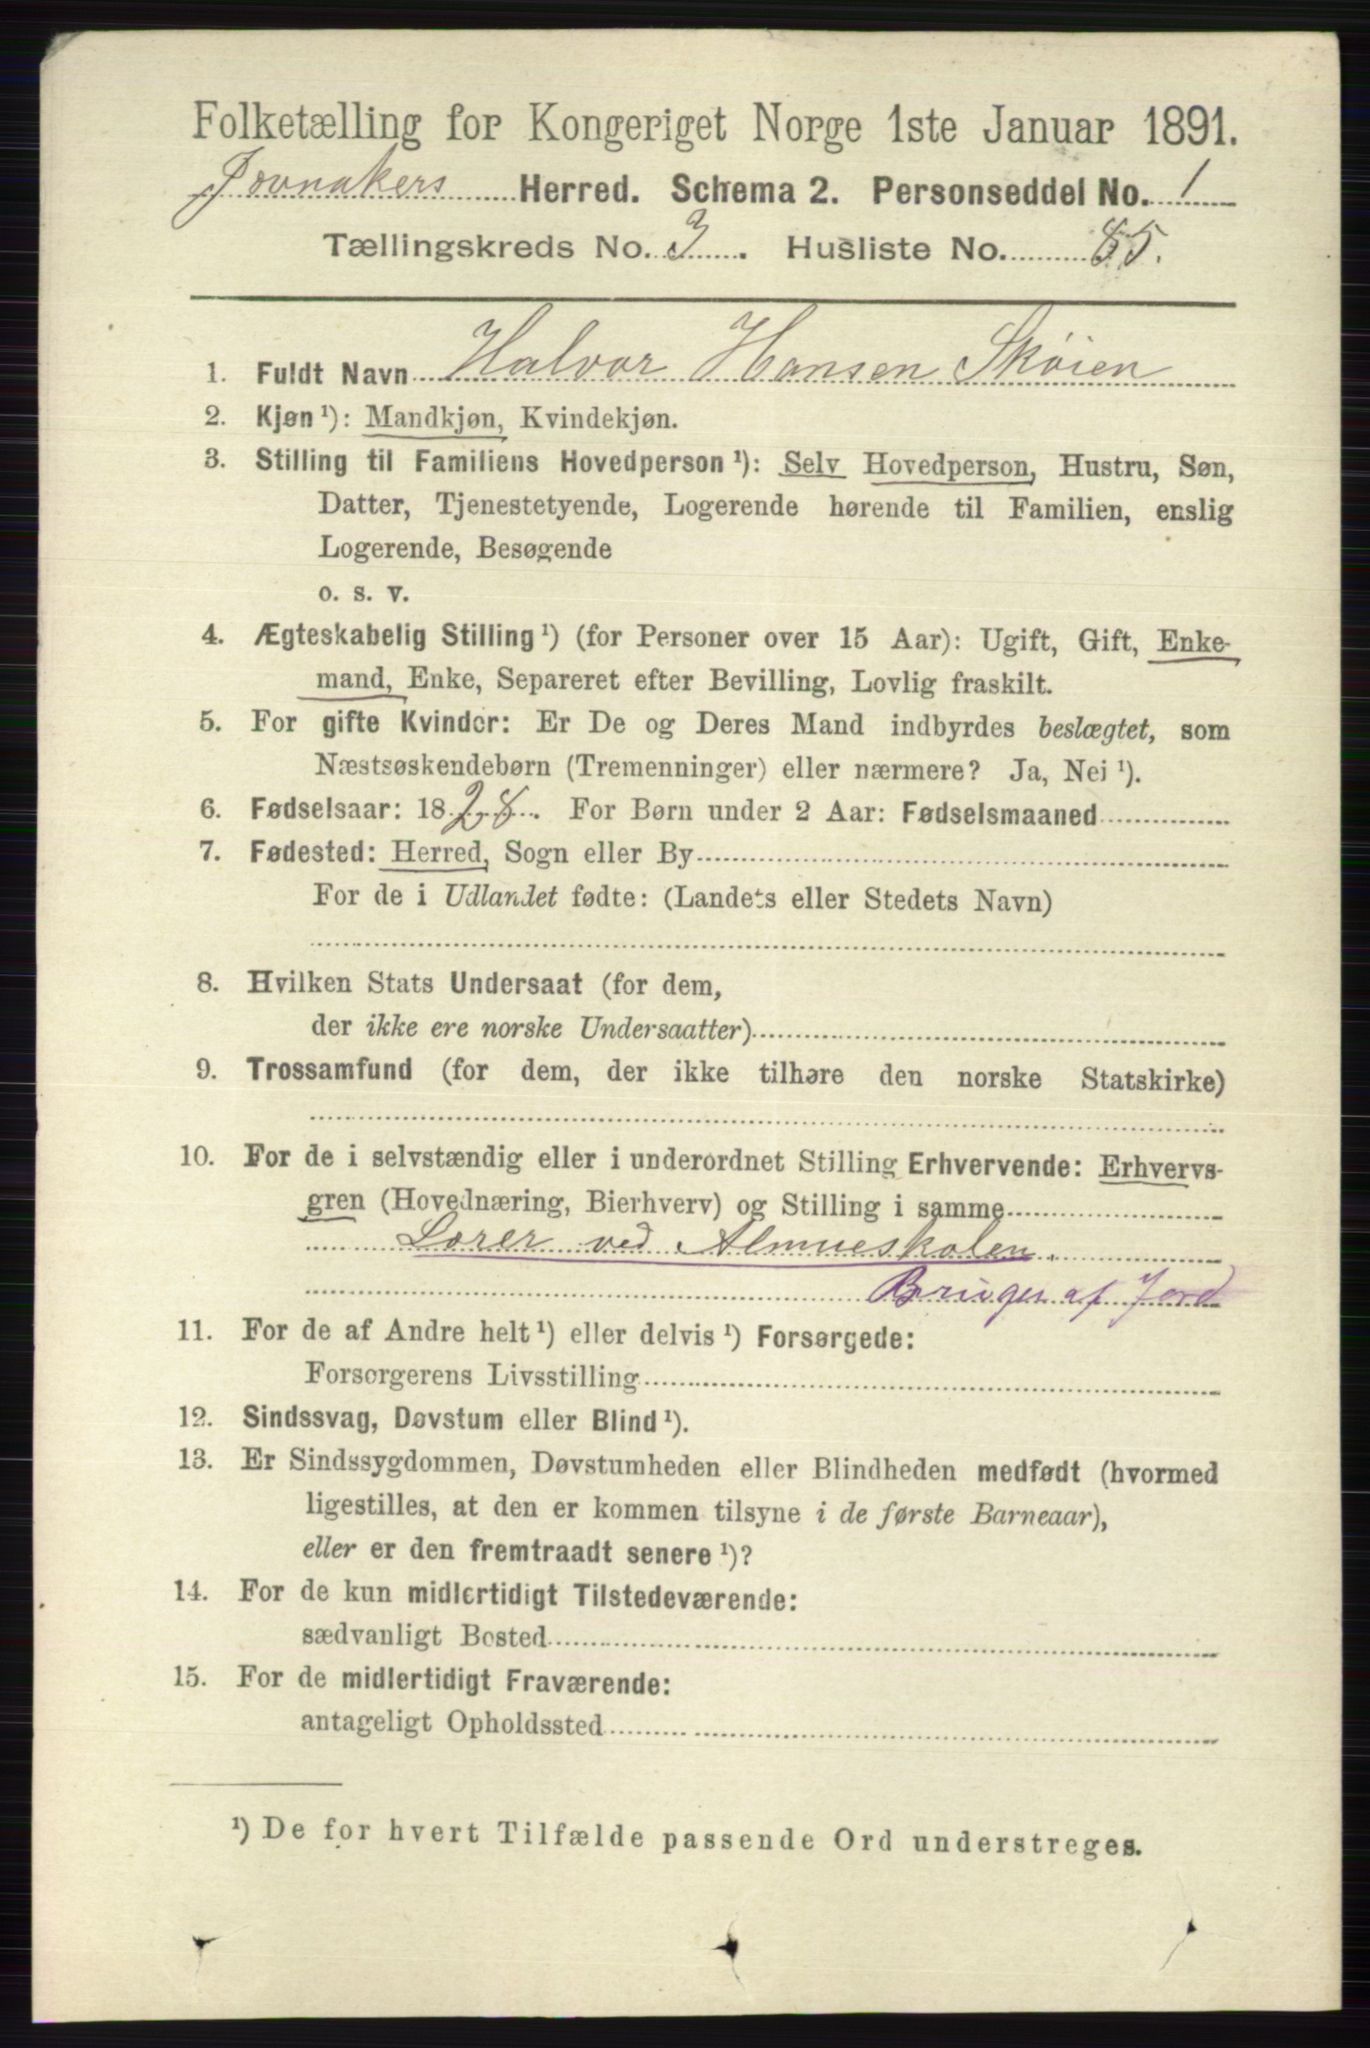 Folketælling for Kongeriget Norge 1ste Januar 1891.
Jevnakers Herred. Schema 2. Personseddel No. 1
Tællingskreds No. 3. Husliste No. 85.
1. Fuldt Navn Halvor Hansen Skøien
2. Kjøn ¹): Mandkjøn, Kvindekjøn.
3. Stilling til Familiens Hovedperson ¹): Selv Hovedperson, Hustru, Søn,
Datter, Tjenestetyende, Logerende hørende til Familien, enslig
Logerende, Besøgende
o. s. v.
4. Ægteskabelig Stilling ¹) (for Personer over 15 Aar): Ugift, Gift, Enke-
mand, Enke, Separeret efter Bevilling, Lovlig fraskilt.
5. For gifte Kvinder: Er De og Deres Mand indbyrdes beslægtet, som
Næstsøskendebørn (Tremenninger) eller nærmere? Ja, Nei ¹).
6. Fødselsaar: 1828. For Børn under 2 Aar: Fødselsmaaned
7. Fødested: Herred, Sogn eller By
For de i Udlandet fødte: (Landets eller Stedets Navn)
8. Hvilken Stats Undersaat (for dem,
der ikke ere norske Undersaatter)
9. Trossamfund (for dem, der ikke tilhøre den norske Statskirke)
10. For de i selvstændig eller i underordnet Stilling Erhvervende: Erhvervs-
gren (Hovednæring, Bierhverv) og Stilling i samme
Lærer ved Almueskolen.
Bruger af Jord
11. For de af Andre helt ¹) eller delvis ¹) Forsørgede:
Forsørgerens Livsstilling
12. Sindssvag, Døvstum eller Blind ¹).
13. Er Sindssygdommen, Døvstumheden eller Blindheden medfødt (hvormed
ligestilles, at den er kommen tilsyne i de første Barneaar),
eller er den fremtraadt senere ¹)?
14. For de kun midlertidigt Tilstedeværende:
sædvanligt Bosted
15. For de midlertidigt Fraværende:
antageligt Opholdssted
¹) De for hvert Tilfælde passende Ord understreges.